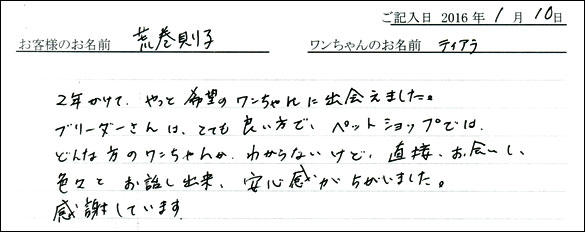 ご記入日 2016年 1月 10日
お客様のお名前 荒巻則子 ワンちゃんのお名前 ティアラ
2年かけて、やっと希望のワンちゃんに出会えました。
ブリーダーさんは、とても良い方で、ペットショップでは、
どんな方のワンちゃんか、わからないけど、直接、お会いし、
色々と お話し出来、安心感がちがいました。
感謝しています